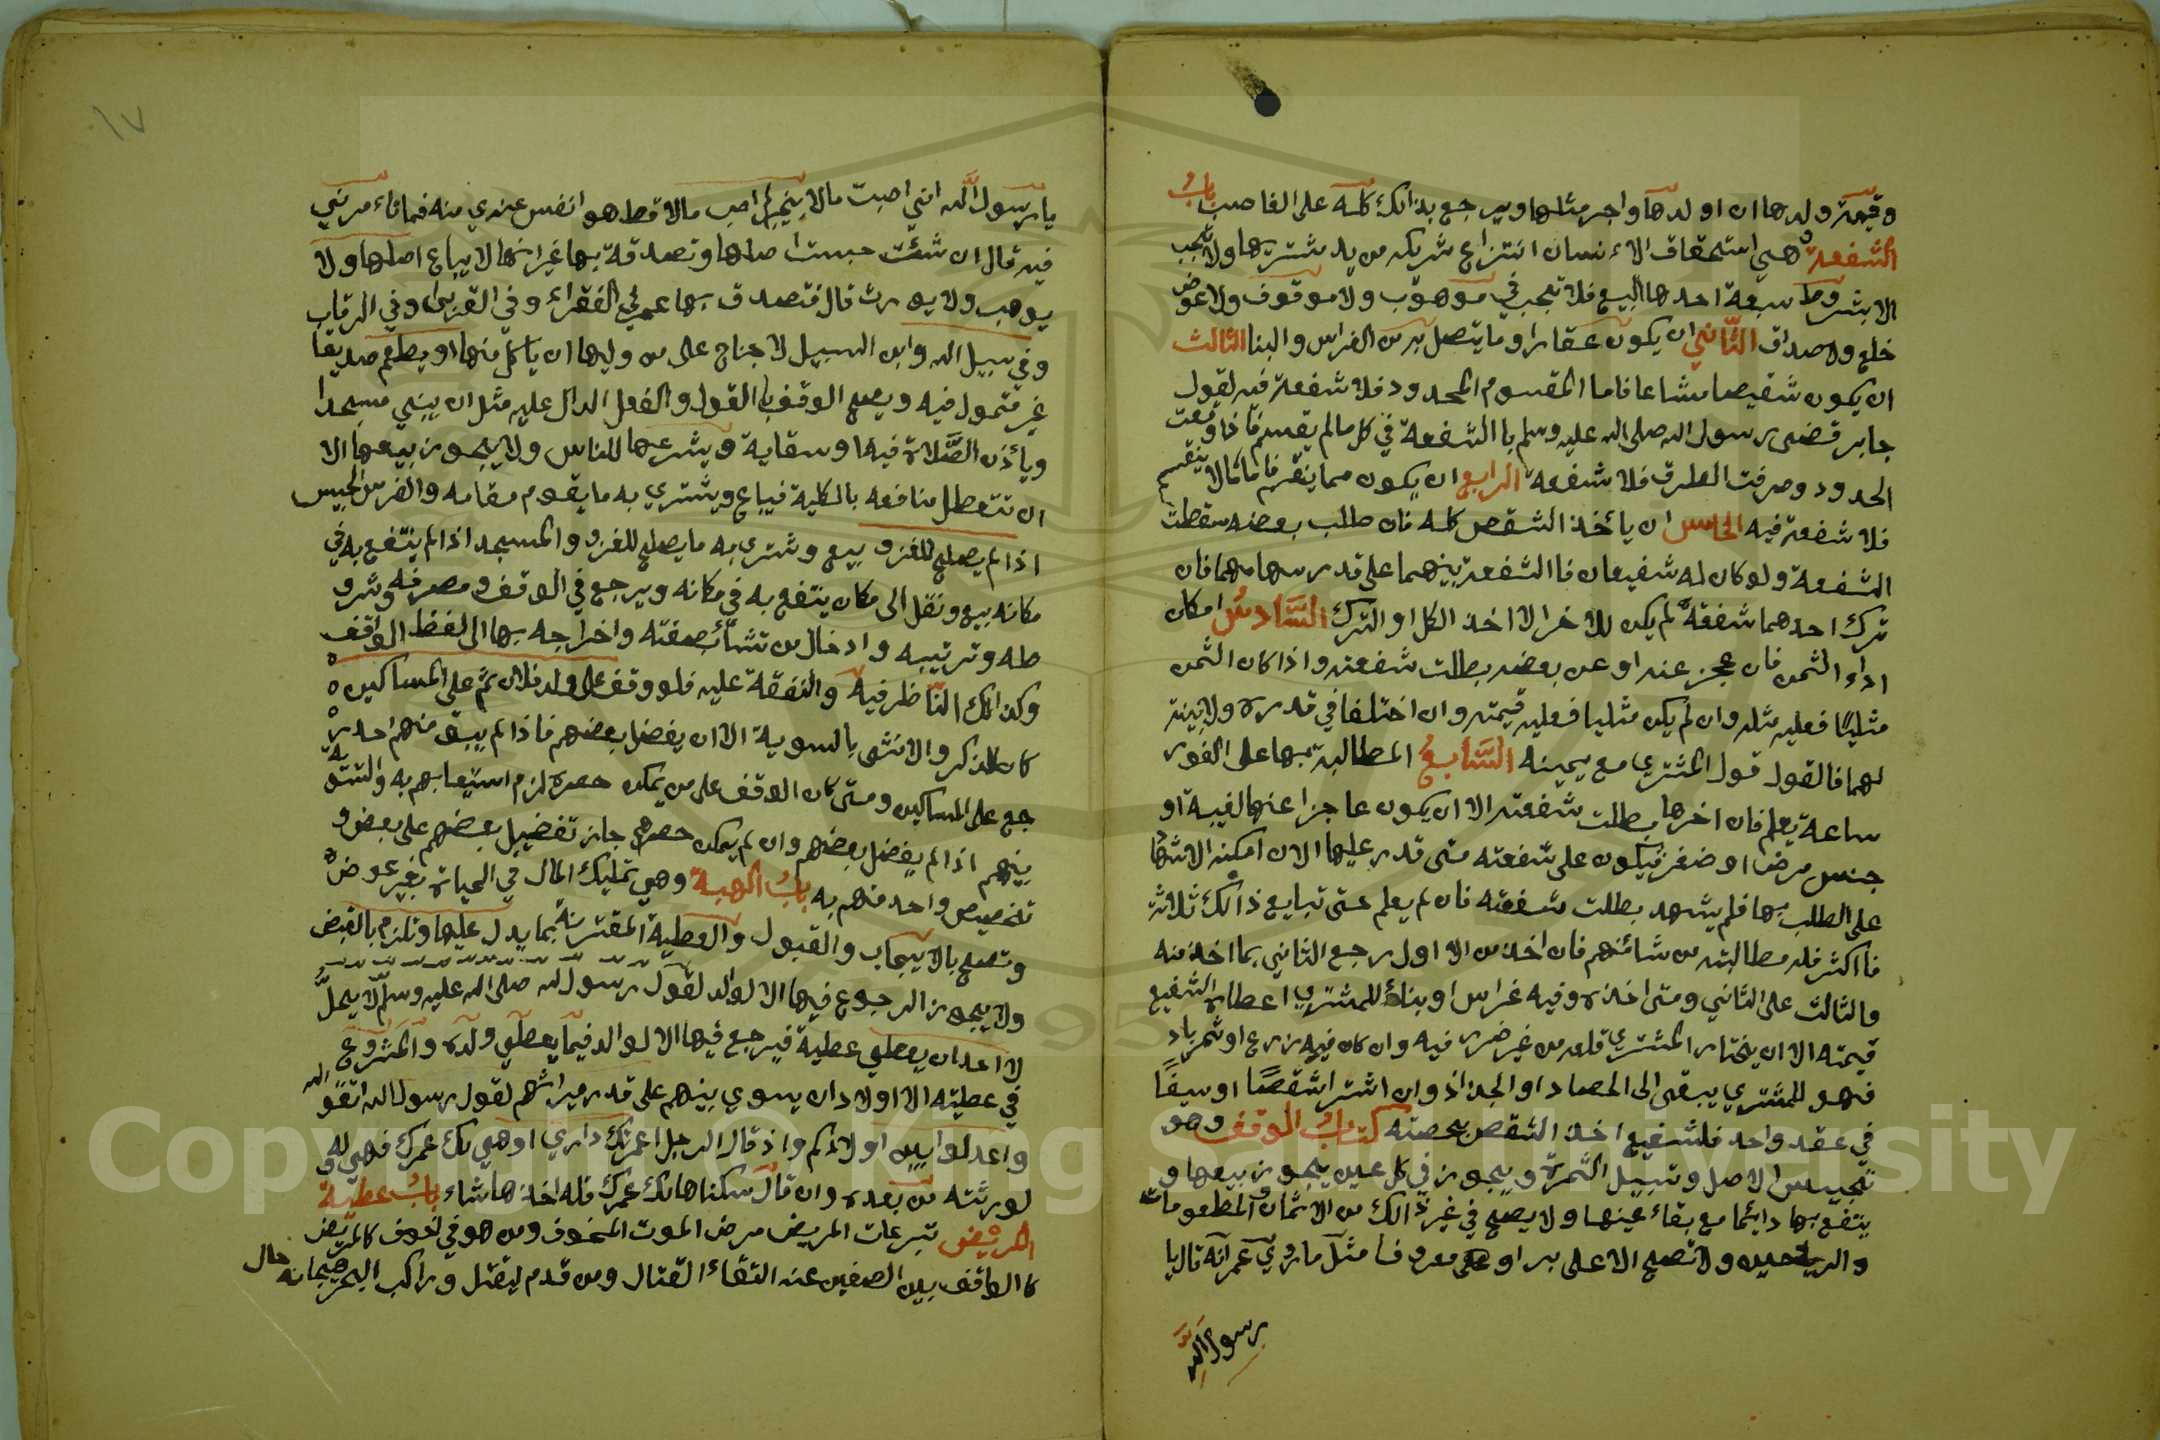 وقيمة ولدها ان اولدها واجر مثلها ويرجع بذالك كله على الغاصب باب
الشفعة وهي استحقاق الانسان انتزاع شريكه من يد مشتريها ولا تجب
الا بشروط سبعة احدها البيع فلا تجب في موهوب ولا موقوف ولا عوض
خلع ولا صداق الثاني ان يكون عقارا وما يتصل به من الغراس والبنا الثالث
ان يكون شقيصا مشاعا فاما المقسوم المحدود فلا شفعة فيه لقول
جابر قضى رسول الله صلى الله عليه وسلم با الشفعة في كل مالم يقسم فاذا وقعت
الحدود وصرفت الطرق فلا شفعة الرابع ان يكون مما ينقسم فاما مالا ينقسم
فلا شفعة فيه الخامس ان يأخذ الشقص كله فان طلب بعضه سقطت
الشفعة ولو كان له شفيعان فا الشفعة بينهما على قدر سهامهما فان
ترك احدهما شفعته لم يكن للاخر الا اخذ الكل او الترك السادس امكان
اداء الثمن فان عجز عنه او عن بعضه بطلت شفعته واذا كان الثمن
مثليا فعليه مثله وان لم يكن مثليا فعليه قيمته وان اختلفا في قدره ولا بينة
لهما فالقول قول المشتري مع يمينه السابع المطالبة بها على الفور
ساعة يعلم فان اخرها بطلت شفعته الا ان يكون عاجزا عنها لغيبة او
حبس مرض او صغر فيكون على شفعته متى قدر عليها الا ان امكنه الاشهاد
على الطلب بها فلم يشهد بطلت شفعته فان لم يعلم حتى تبايع ذالك ثلاثة
فا اكثر فله مطالبة من شاء منهم فان اخذ من الاول رجع الثاني بما اخذ منه
والثالث على الثاني ومتى اخذه وفيه غراس او بناء للمشتري اعطاه الشفيع
قيمته الا ان يختار المشتري قلعه من غير ضرر فيه وان كان فيه زرع او ثمر باد
فهو للمشتري يبقى الى الحصاد او الجذاذ وان اشترا شقصًا وسيفًا
في عقد واحد فلشفيع اخذ الشقص بحصته كتاب الوقف وهو
تحبيس الاصل وتسبيل الثمرة ويجوز في كل عين يجوز بيعها و
ينتفع بها دائما مع بقاء عينها ولا يصح في غير ذالك من الاثمان والمطعومات
والرياحين ولا تصح الا على بر او معروف مثل ما روي عمر انه قال يا
رسول الله
١٧
يا رسول الله انني اصبت مالا بخيبر لم اصب مالا قط هو انفس عندي منه فما تأمرني
فيه قال ان شئت حبست اصلها وتصدقة بها غير انها لا يباع اصلها ولا
يوهب ولا يورث قال فتصدق بها عمر في الفقراء وفي القربى وفي الرقاب
وفي سبيل الله وابن السبيل لا جناح على من وليها ان يأكل منها او يطعم صديقا
غير متمول فيه ويصح الوقف با القول والفعل الدال عليه مثل ان يبني مسجدا
ويأذن الصلاة فيه او سقاية ويشرعها للناس ولا يجوز بيعها الا
ان تتعطل منافعه بالكلية فيباع ويشتري به ما يقوم مقامه والفرس الحبيس
اذا لم يصلح للغزو بيع وشتري به ما يصلح للغزو والمسجد اذا لم ينتفع به في
مكانه بيع ونقل الى مكان ينتفع به في مكانه ويرجع في الوقف ومصرفه وشرو
طه وترتيبه وادخال من تشأ بصفته واخراجه بها الى لفظ الواقف
وكذالك الناظر فيه والنفقة عليه فلو وقف على ولد فلان ثم على المساكين
كان للذكر والانثى بالسوية الا ان يفضل بعضهم فاذا لم يبق منهم احد ر
جع على المساكين ومتى كان الوقف على من يمكن حصره لزم استيعابهم به والتسوية
بينهم اذا لم يفضل بعضهم وان لم يمكن حصرهم جاز تفضيل بعضهم على بعض و
تخصيص واحد منهم به باب الهبة وهي تمليك المال في الحياة بغير عوض
وتصح بالايجاب والقبول والعطية المقترنة بما يدل عليها وتلزم بالقبض
ولا يجوز الرجوع فيها الا لوالد لقول رسول الله صلى الله عليه وسلم لا يحل
لا احد ان يعطي عطية فيرجع فيها الا لوالد فيما يعطي ولده والمشروع
في عطيته الا اولاد ان يسوي بينهم على قدر ميراثهم لقول رسول الله اتقو الله
واعدلوا بين اولادكم واذ قال الرجل اعمرتك داري او هي لك عمرك فهي له و
لورثته من بعده وان قال سكناها لك عمرك فله اخذها شاء باب عطية
المريض تبرعات المريض مرض الموت المخوف ومن هو في الخوف كالمريض
كا الواقف بين الصفين عند التقاء القتال ومن قدم ليقتل وراكب البحر هيجانه حال
Copyright © King Saud University